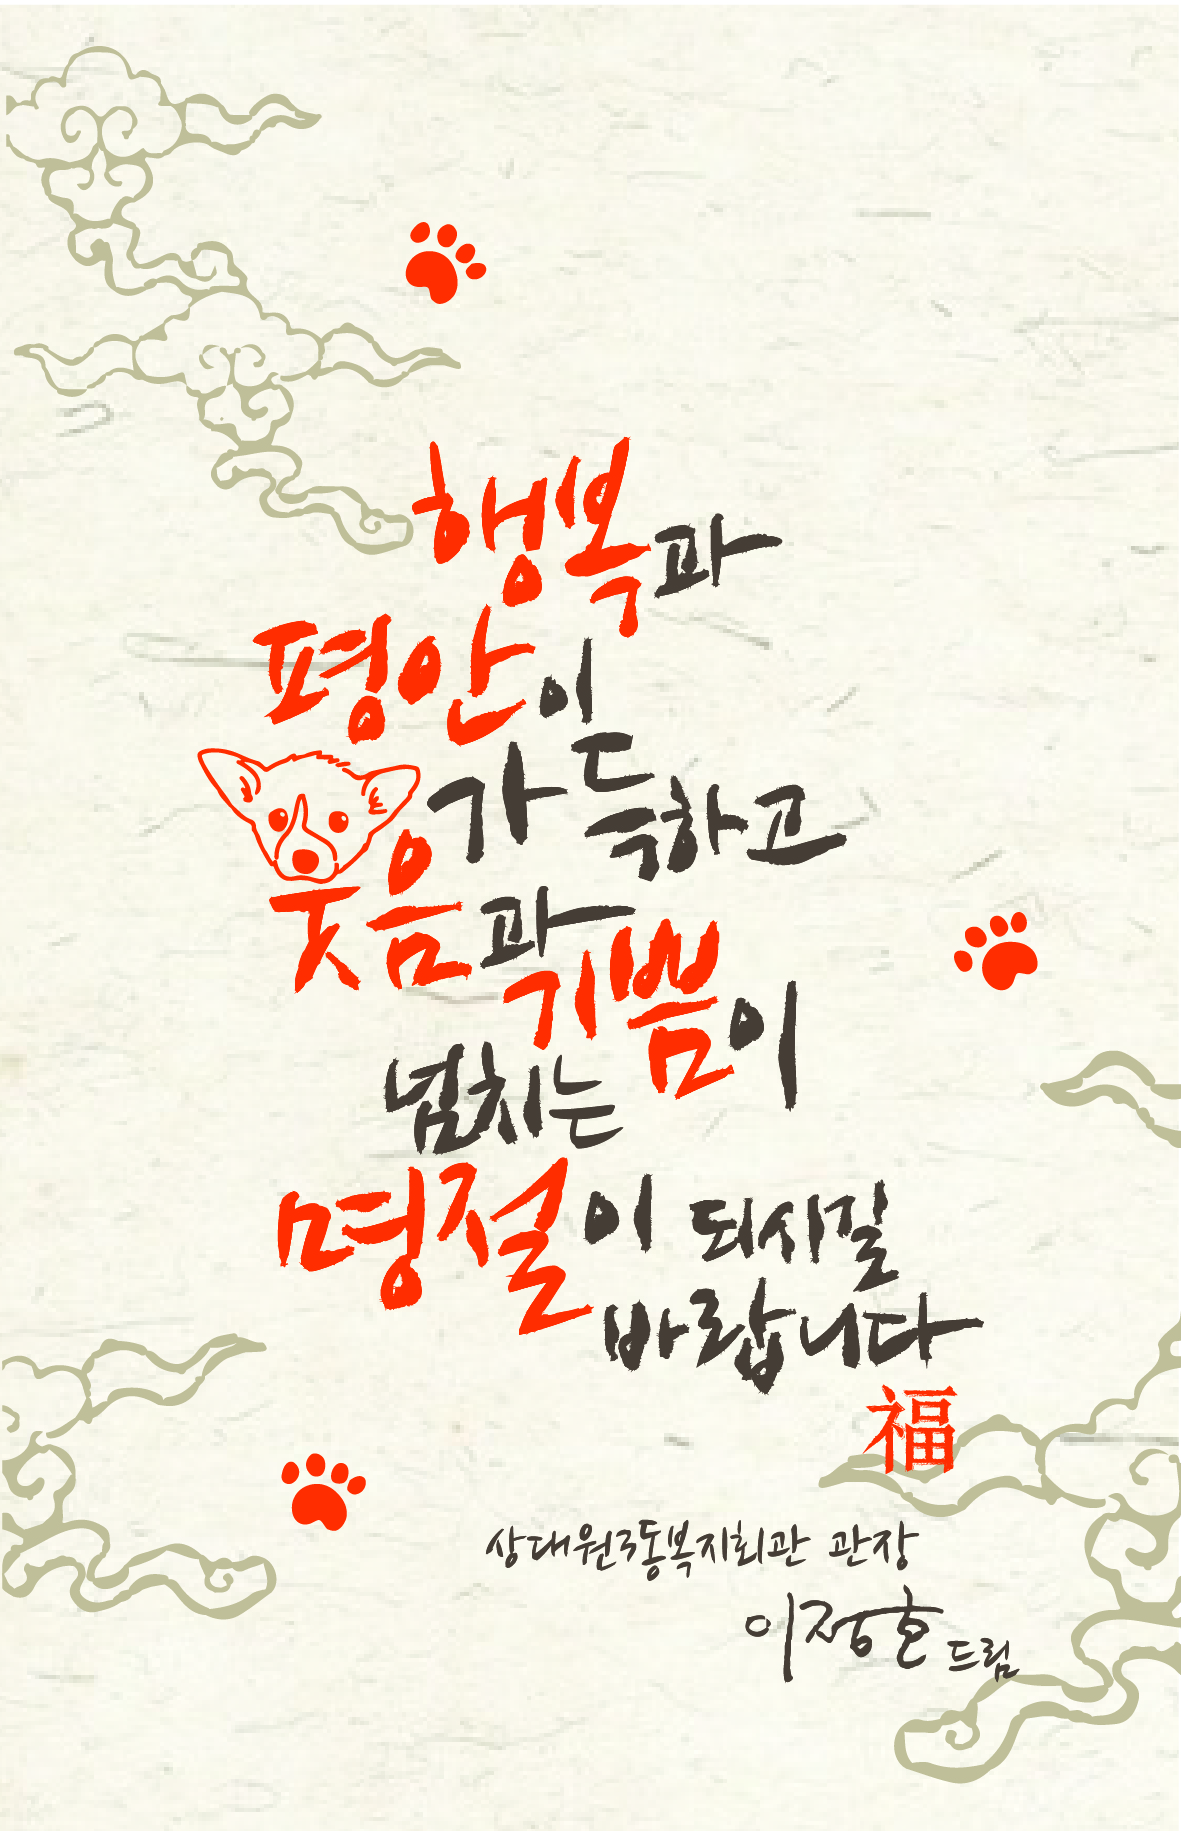 행복과
평안이
가득하고
웃음과 기쁨이
넘치는
명절이 되시길
바랍니다
福
상대원3동복지회관 관장
이정호 드림